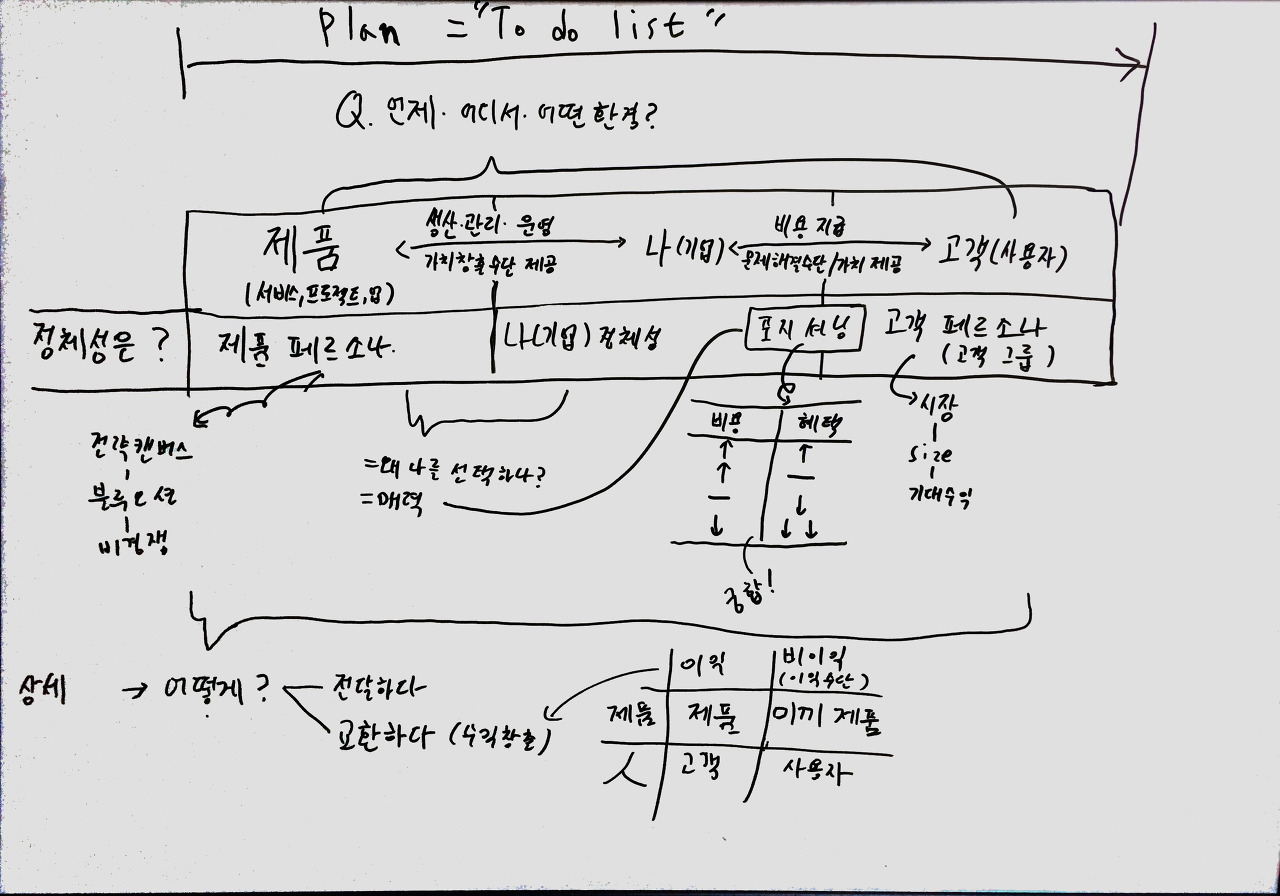 Plan = "To do list"
Q. 언제. 어디서. 어떤 한결?
제품
(서비스, 프로젝트, 업)
생산·관리·운영
가치창출수단 제공
나(기업)
비용 지급
문제해결수단/가치 제공
고객(사용자)
정체성은?
제품 페르소나.
나(기업) 정체성
포지셔닝
고객 페르소나
(고객 그룹)
전략캔버스
블루오션
비경쟁
=왜 나를 선택하나?
=매력
비용
혜택
궁합!
시장
size
기대수익
상세
→ 어떻게?
전달하다
교환하다 (수익창출)
이익
비이익
(이익수단)
제품
제품
미끼 제품
고객
사용자